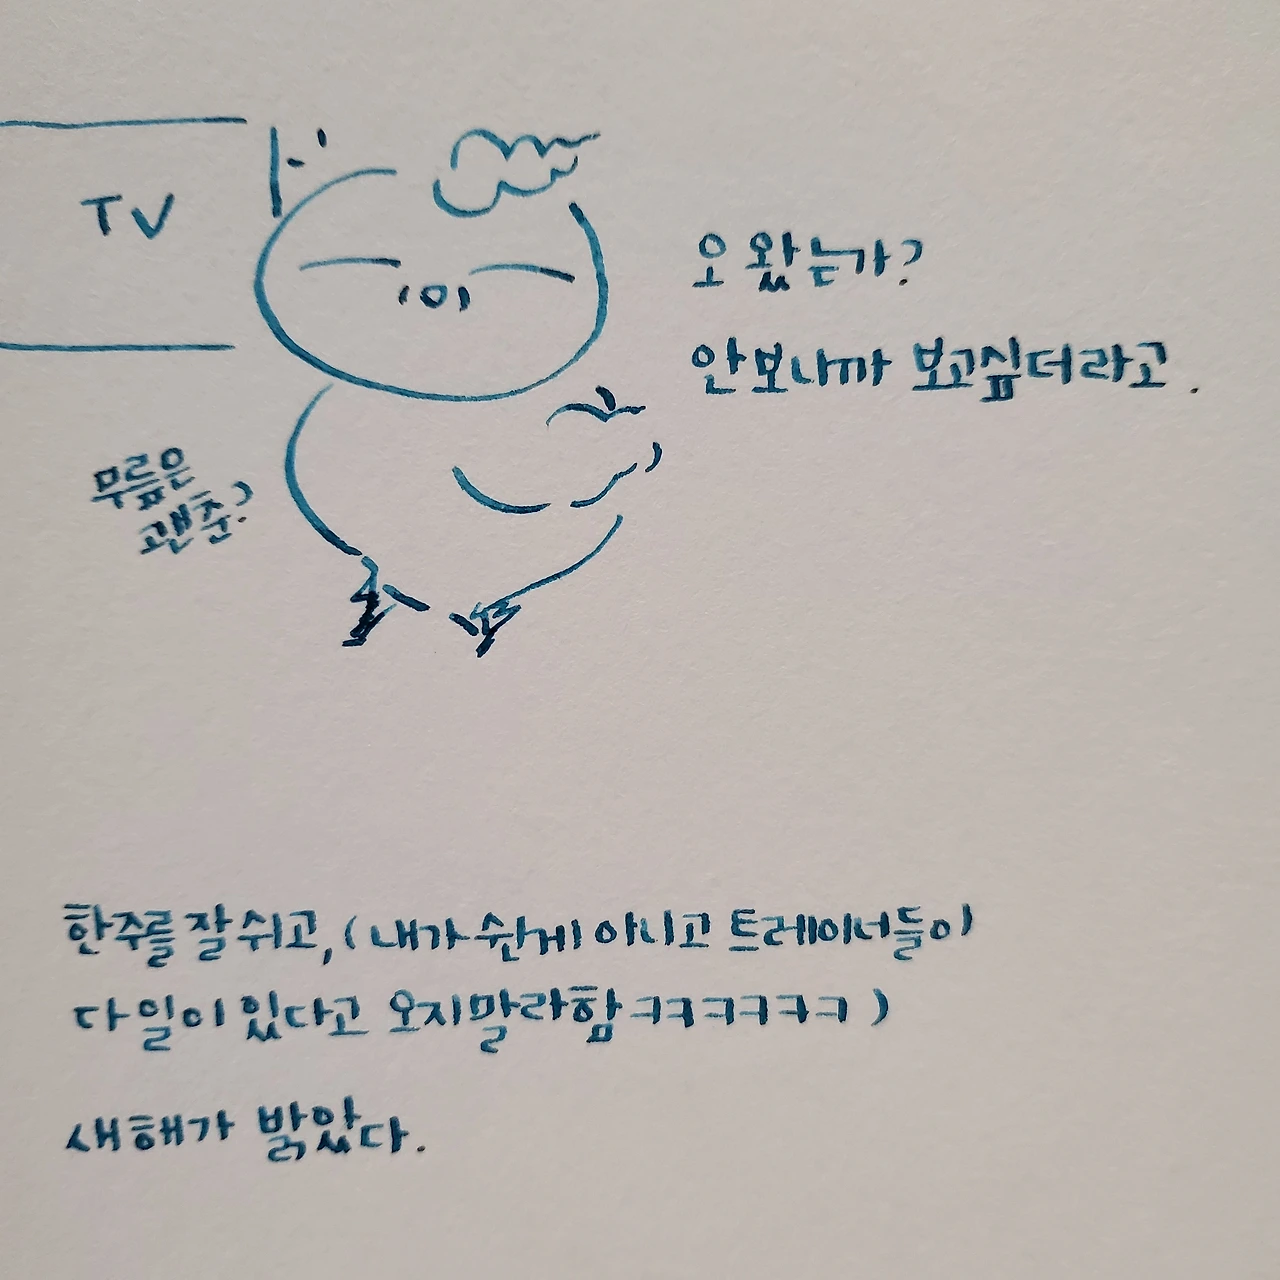 TV
오 왔는가?
안보니까 보고싶더라고.
무릎은
괜춘?
한주를 잘 쉬고, (내가 쉰게 아니고 트레이너들이
다 일이 있다고 오지말라함 ㅋㅋㅋㅋㅋㅋ)
새해가 밝았다.